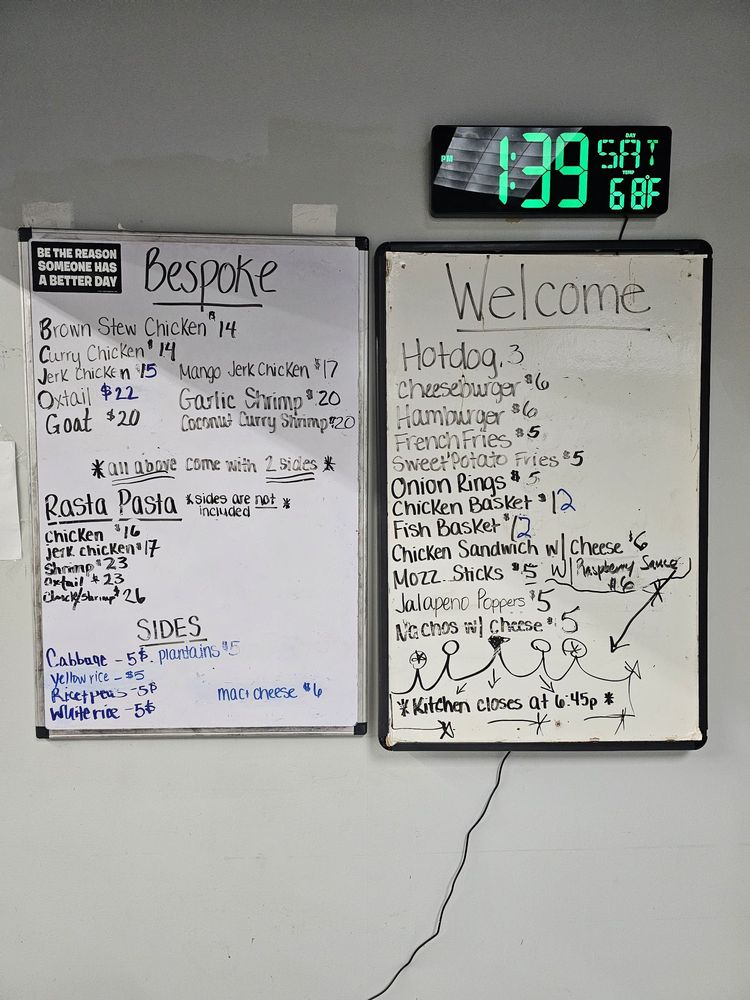 PM 1:39 DAY SAT
TEMP 68°F
BE THE REASON
SOMEONE HAS
A BETTER DAY
Bespoke
Brown Stew Chicken $14
Curry Chicken $14
Jerk Chicken $15 Mango Jerk Chicken $17
Oxtail $22 Garlic Shrimp $20
Goat $20 Coconut Curry Shrimp $20
*all above come with 2 sides*
Rasta Pasta *sides are not included*
Chicken $16
jerk chicken $17
Shrimp $23
Oxtail $23
Chick/Shrimp $26
SIDES
Cabbage - 5$. plantains $5
Yellow rice - $5
Rice + peas - 5$ mac + cheese $6
White rice - 5$
Welcome
Hotdog. 3
Cheeseburger $6
Hamburger $6
French Fries $5
Sweet Potato Fries $5
Onion Rings $5
Chicken Basket $12
Fish Basket $12
Chicken Sandwich w/ Cheese $6
Mozz. Sticks $5 w/ Raspberry Sauce $6
Jalapeno Poppers $5
Nachos w/ Cheese $5
*Kitchen closes at 6:45p*